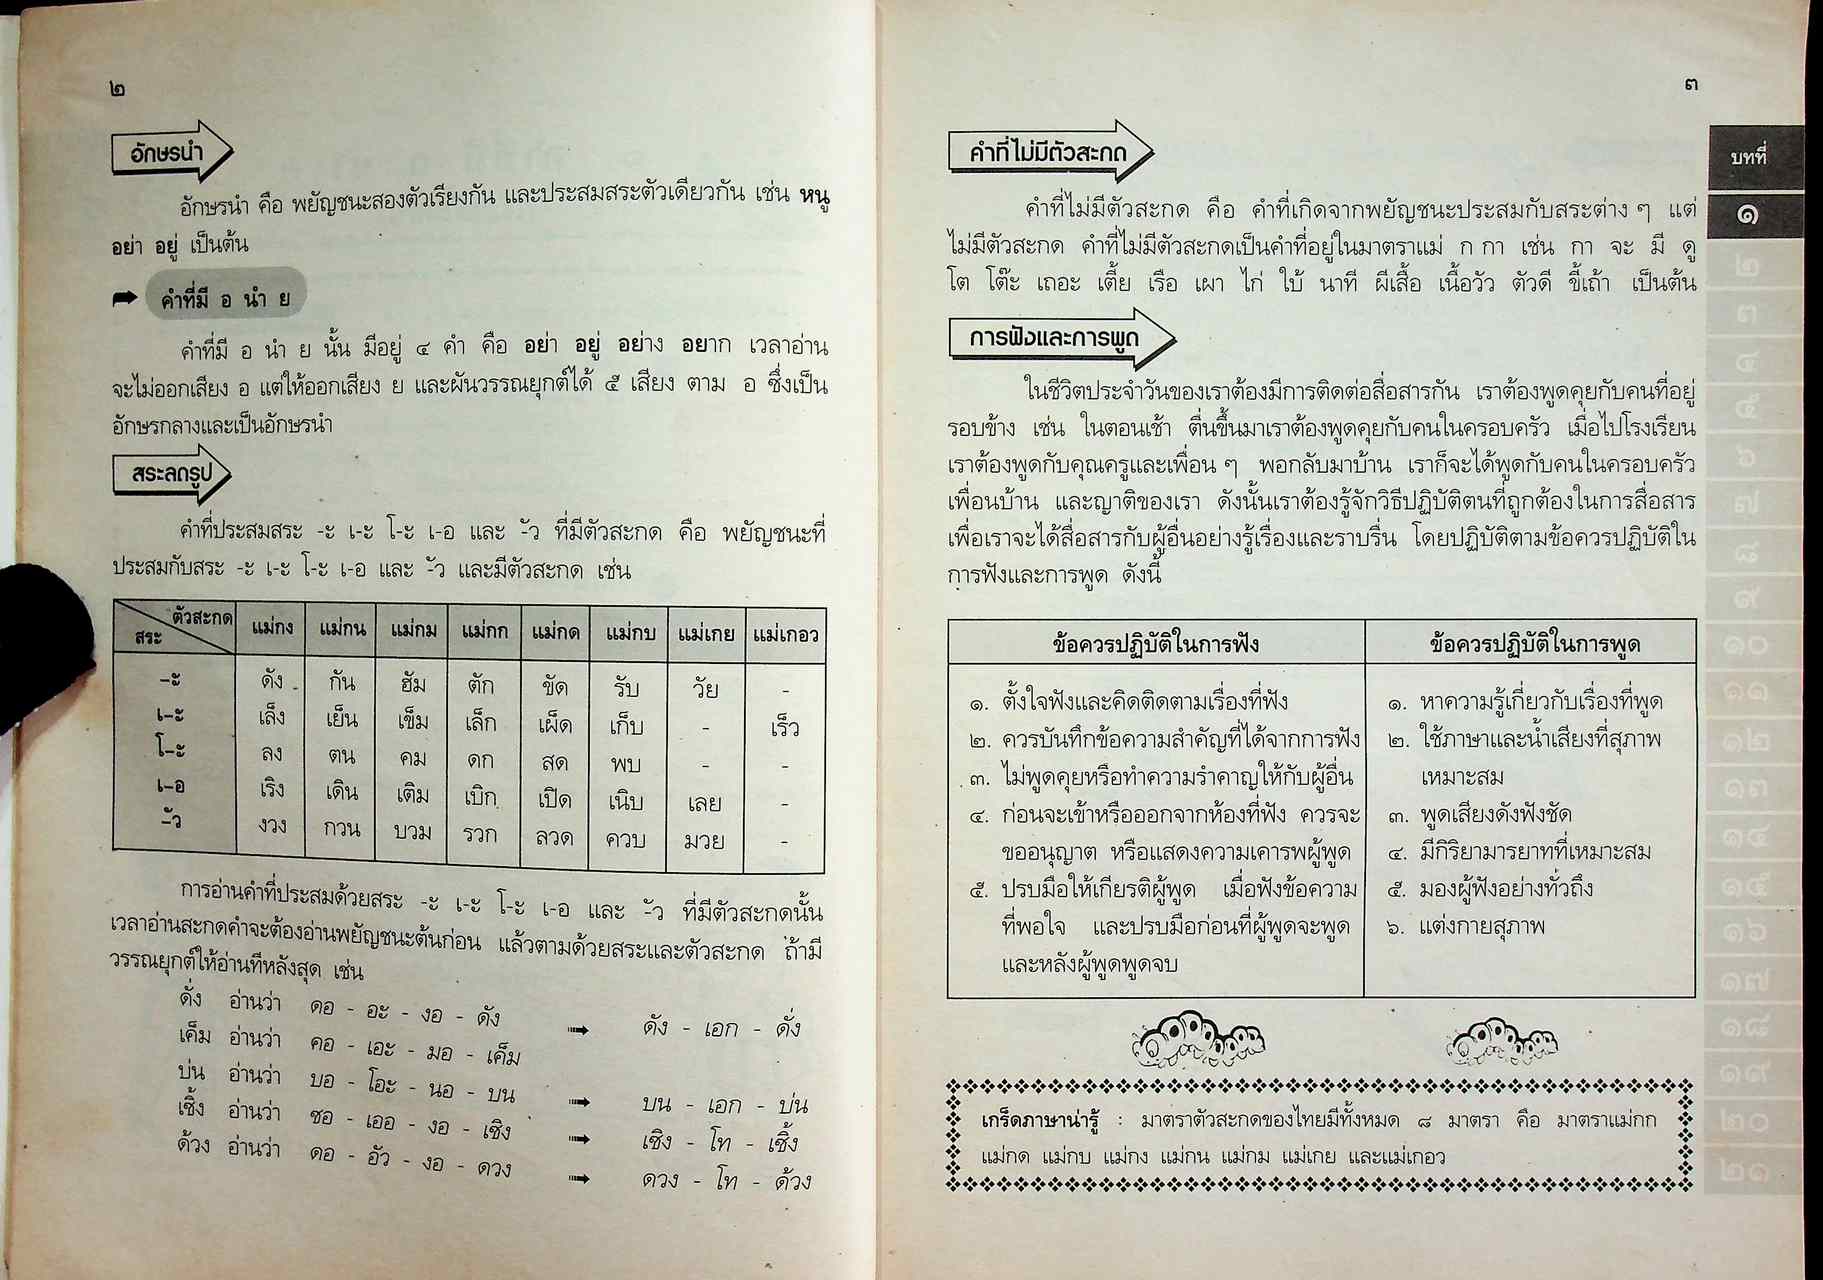 ๒
อักษรนำ
อักษรนำ คือ พยัญชนะสองตัวเรียงกัน และประสมสระตัวเดียวกัน เช่น หนู
อย่า อยู่ เป็นต้น
คำที่มี อ นำ ย
คำที่มี อ นำ ย นั้น มีอยู่ ๔ คำ คือ อย่า อยู่ อย่าง อยาก เวลาอ่าน
จะไม่ออกเสียง อ แต่ให้ออกเสียง ย และผันวรรณยุกต์ได้ ๕ เสียง ตาม อ ซึ่งเป็น
อักษรกลางและเป็นอักษรนำ
สระลดรูป
คำที่ประสมสระ -ะ เ-ะ โ-ะ เ-อ และ -ัว ที่มีตัวสะกด คือ พยัญชนะที่
ประสมกับสระ -ะ เ-ะ โ-ะ เ-อ และ -ัว และมีตัวสะกด เช่น
ตัวสะกด สระ แม่กง แม่กน แม่กม แม่กก แม่กด แม่กบ แม่เกย แม่เกอว
-ะ ดัง กัน ฮัม ตัก ขัด รับ วัย -
เ-ะ เล็ง เย็น เข็ม เล็ก เผ็ด เก็บ - เร็ว
โ-ะ ลง ตน คม ดก สด พบ - -
เ-อ เริง เดิน เติม เบิก เปิด เนิบ เลย -
-ัว งวง กวน บวม รวก ลวด ควบ มวย -
การอ่านคำที่ประสมด้วยสระ -ะ เ-ะ โ-ะ เ-อ และ -ัว ที่มีตัวสะกดนั้น
เวลาอ่านสะกดคำจะต้องอ่านพยัญชนะต้นก่อน แล้วตามด้วยสระและตัวสะกด ถ้ามี
วรรณยุกต์ให้อ่านทีหลังสุด เช่น
ดั่ง อ่านว่า ดอ - อะ - งอ - ดัง ➟ ดัง - เอก - ดั่ง
เค็ม อ่านว่า คอ - เอะ - มอ - เค็ม
บ่น อ่านว่า บอ - โอะ - นอ - บน ➟ บน - เอก - บ่น
เชิ้ง อ่านว่า ชอ - เออ - งอ - เชิง ➟ เชิง - โท - เชิ้ง
ด้วง อ่านว่า ดอ - อัว - งอ - ดวง ➟ ดวง - โท - ด้วง
๓
คำที่ไม่มีตัวสะกด
คำที่ไม่มีตัวสะกด คือ คำที่เกิดจากพยัญชนะประสมกับสระต่าง ๆ แต่
ไม่มีตัวสะกด คำที่ไม่มีตัวสะกดเป็นคำที่อยู่ในมาตราแม่ ก กา เช่น กา จะ มี ดู
โต โต๊ะ เถอะ เตี้ย เรือ เผา ไก่ ใบ้ นาที ผีเสื้อ เนื้อวัว ตัวดี ขี้เถ้า เป็นต้น
การฟังและการพูด
ในชีวิตประจำวันของเราต้องมีการติดต่อสื่อสารกัน เราต้องพูดคุยกับคนที่อยู่
รอบข้าง เช่น ในตอนเช้า ตื่นขึ้นมาเราต้องพูดคุยกับคนในครอบครัว เมื่อไปโรงเรียน
เราต้องพูดกับคุณครูและเพื่อน ๆ พอกลับมาบ้าน เราก็จะได้พูดกับคนในครอบครัว
เพื่อนบ้าน และญาติของเรา ดังนั้นเราต้องรู้จักวิธีปฏิบัติตนที่ถูกต้องในการสื่อสาร
เพื่อเราจะได้สื่อสารกับผู้อื่นอย่างรู้เรื่องและราบรื่น โดยปฏิบัติตามข้อควรปฏิบัติใน
การฟังและการพูด ดังนี้
ข้อควรปฏิบัติในการฟัง
๑. ตั้งใจฟังและคิดติดตามเรื่องที่ฟัง
๒. ควรบันทึกข้อความสำคัญที่ได้จากการฟัง
๓. ไม่พูดคุยหรือทำความรำคาญให้กับผู้อื่น
๔. ก่อนจะเข้าหรือออกจากห้องที่ฟัง ควรจะ
ขออนุญาต หรือแสดงความเคารพผู้พูด
๕. ปรบมือให้เกียรติผู้พูด เมื่อฟังข้อความ
ที่พอใจ และปรบมือก่อนที่ผู้พูดจะพูด
และหลังผู้พูดพูดจบ
ข้อควรปฏิบัติในการพูด
๑. หาความรู้เกี่ยวกับเรื่องที่พูด
๒. ใช้ภาษาและน้ำเสียงที่สุภาพ
เหมาะสม
๓. พูดเสียงดังฟังชัด
๔. มีกิริยามารยาทที่เหมาะสม
๕. มองผู้ฟังอย่างทั่วถึง
๖. แต่งกายสุภาพ
เกร็ดภาษาน่ารู้ : มาตราตัวสะกดของไทยมีทั้งหมด ๘ มาตรา คือ มาตราแม่กก
แม่กด แม่กบ แม่กง แม่กน แม่กม แม่เกย และแม่เกอว
บทที่
๑
๒
๓
๔
๕
๖
๗
๘
๙
๑๐
๑๑
๑๒
๑๓
๑๔
๑๕
๑๖
๑๗
๑๘
๑๙
๒๐
๒๑